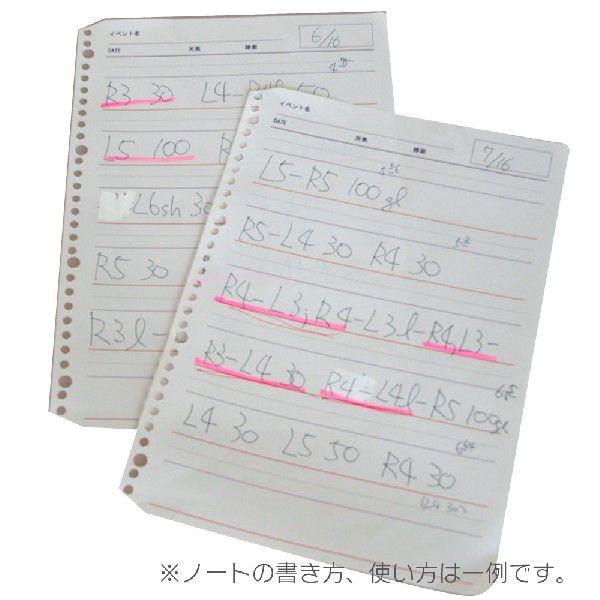 イベント名
6/16
DATE 天気 時間
R3 30 L4-
L5 100
L6sh 30
R5 30
R3l-
イベント名
DATE 天気 時間
7/16
L5-R5 100gl
R5-L4 30 R4 30
R4-L3, R4-L3l-R4, L3-
R3-L4 30 R4-L4l-R5 100gl
L4 30 L5 50 R4 30
※ノートの書き方、使い方は一例です。